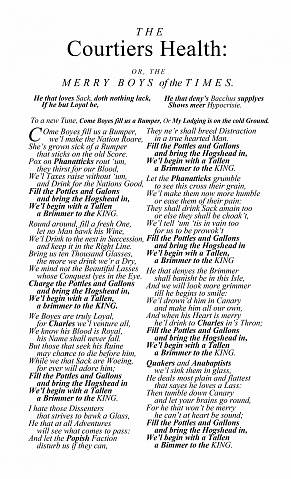 THE
Courtiers Health:
OR, THE
MERRY BOYS of the TIMES.
He that loves Sack, doth nothing lack,
If he but Loyal be,
He that deny's Bacchus supplyes
Shows meer Hypocrisie.
To a new Tune, Come Boyes fill us a Bumper, Or My Lodging is on the cold Ground.
COme Boyes fill us a Bumper,
we'l make the Nation Roare,
She's grown sick of a Rumper
that sticks on the old Score.
Pox on Phanaticks rout 'um,
they thirst for our Blood,
We'l Taxes raise without 'um,
and Drink for the Nations Good,
Fill the Pottles and Galons
and bring the hogshead in,
We'l begin with a Tallen
a Brimmer to the KING.
Round around, fill a fresh One,
let no Man bawk his Wine,
We'l Drink to the next in Succession,
and keep it in the Right Line.
Bring us ten Thousand Glasses,
the more we drink we'r a Dry,
We mind not the Beautiful Lasses
whose Conquest lyes in the Eye.
Charge the Pottles and Gallons
and bring the Hogshead in,
We'l begin with a Tallen,
a brimmer to the KING.
We Boyes are truly Loyal,
for Charles we'l venture all,
We know his Blood is Royal,
his Name shall never fall.
But those that seek his Ruine
may chance to die before him,
While we that Sack are Woeing,
for ever will adore him;
Fill the Pottles and Gallons
and bring the Hogshead in
We'l begin with a Tallen
a Brimmer to the KING.
I hate those Dissenters
that strives to bawk a Glass,
He that at all Adventures
will see what comes to pass:
And let the Popish Faction
disturb us if they can,
They ne'r shall breed Distraction
in a true hearted Man.
Fill the Pottles and Gallons
and bring the Hogshead in,
We'l begin with a Tallen
a Brimmer to the KING.
Let the Phanaticks grumble
to see this cross their grain,
We'l make them now more humble
or ease them of their pain:
They shall drink Sack amain too
or else they shall be choak't,
We'l tell 'um 'tis in vain too
for us to be provok't
Fill the Pottles and Gallons
and bring the Hogshead in,
We'l begin with a Tallen
a Brimmer to the KING
He that denyes the Brimmer
shall banisht be in this Isle,
And we will look more grimmer
till he begins to smile:
We'l drown'd him in Canary
and make him all our own,
And when his Heart is merry
he'l drink to Charles in's Throne;
Fill the Pottles and Gallons
and bring the Hogshead in,
We'l begin with a Tallen
a Brimmer to the KING.
Quakers and Anabaptists
we'l sink them in glass,
He deals most plain and flattest
that sayes he loves a Lass:
Then tumble down Canary
and let your brains go round,
For he that won't be merry
he can't at heart be sound;
Fill the Pottles and Gallons
and bring the Hogshead in,
We'l begin with a Tallen
a Bimmer to the KING.